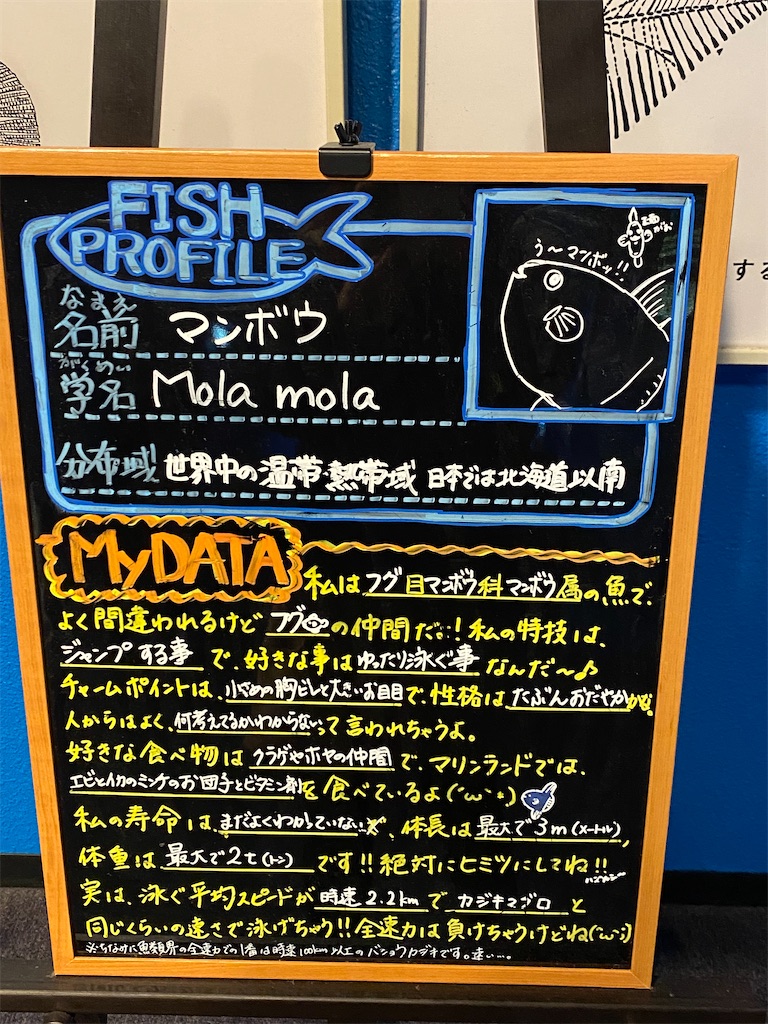 FISH
PROFILE
正面がお
う〜マンボッ!!
なまえ
名前 マンボウ
がくめい
学名 Mola mola
分布域 世界中の温帯・熱帯域 日本では北海道以南
する
MyDATA
私は フグ目マンボウ科マンボウ属の魚で、
よく間違われるけど フグの仲間だよ!私の特技は、
ジャンプする事 で、好きな事は ゆったり泳ぐ事 なんだ〜♪
チャームポイントは、小さめの胸ビレと大きいお目目で、性格は たぶんおだやかかな。
人からはよく、何考えてるかわからないって言われちゃうよ。
好きな食べ物は クラゲやホヤの仲間 で、マリンランドでは、
エビとイカのミンチのお団子とビタミン剤を食べているよ(´ω`*)
私の寿命は、まだよくわかっていない、体長は 最大で3m(メートル)、
体重は 最大で2t(トン) です!!絶対にヒミツにしてね!!
実は、泳ぐ平均スピードが 時速2.2km で カジキマグロ と
同じくらいの速さで泳げちゃう!!全速力は負けちゃうけどね(´ω`;)
※ちなみに魚類界の全速力での1番は時速100km以上のバショウカジキです。速い…。